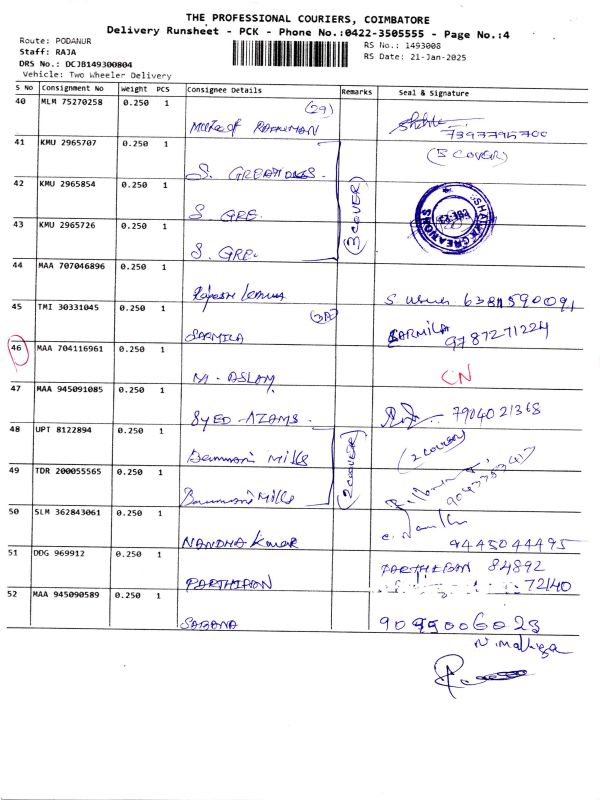 THE PROFESSIONAL COURIERS, COIMBATORE
Delivery Runsheet - PCK - Phone No.:0422-3505555 - Page No.:4
Route: PODANUR
RS No.: 1493008
Staff: RAJA
RS Date: 21-Jan-2025
DRS No.: DCJB149300804
Vehicle: Two Wheeler Delivery
S No Consignment No Weight PCS Consignee Details Remarks Seal & Signature
40 MLM 75270258 0.250 1 (29)
RAHUMAN
41 KMU 2965707 0.250 1 (3 COVER)
S. GREATIONS.
42 KMU 2965854 0.250 1
S GRE. (3 COVER)
43 KMU 2965726 0.250 1
S. GRE.
44 MAA 707046896 0.250 1
Rajesh
45 TMI 30331045 0.250 1
SARMILA SARMILA 9787271224
46 MAA 704116961 0.250 1
M. ASLAM CN
47 MAA 945091085 0.250 1
SYED - AZAMS. 7904021368
48 UPT 8122894 0.250 1 (2 COVER)
Mills
49 TDR 200055565 0.250 1 (2 COVER)
Mills
50 SLM 362843061 0.250 1
NANDHA Kumar 9445044495
51 DDG 969912 0.250 1 PARTHIBAN 84892
PARTHIBAN 72140
52 MAA 945090589 0.250 1
SABANA